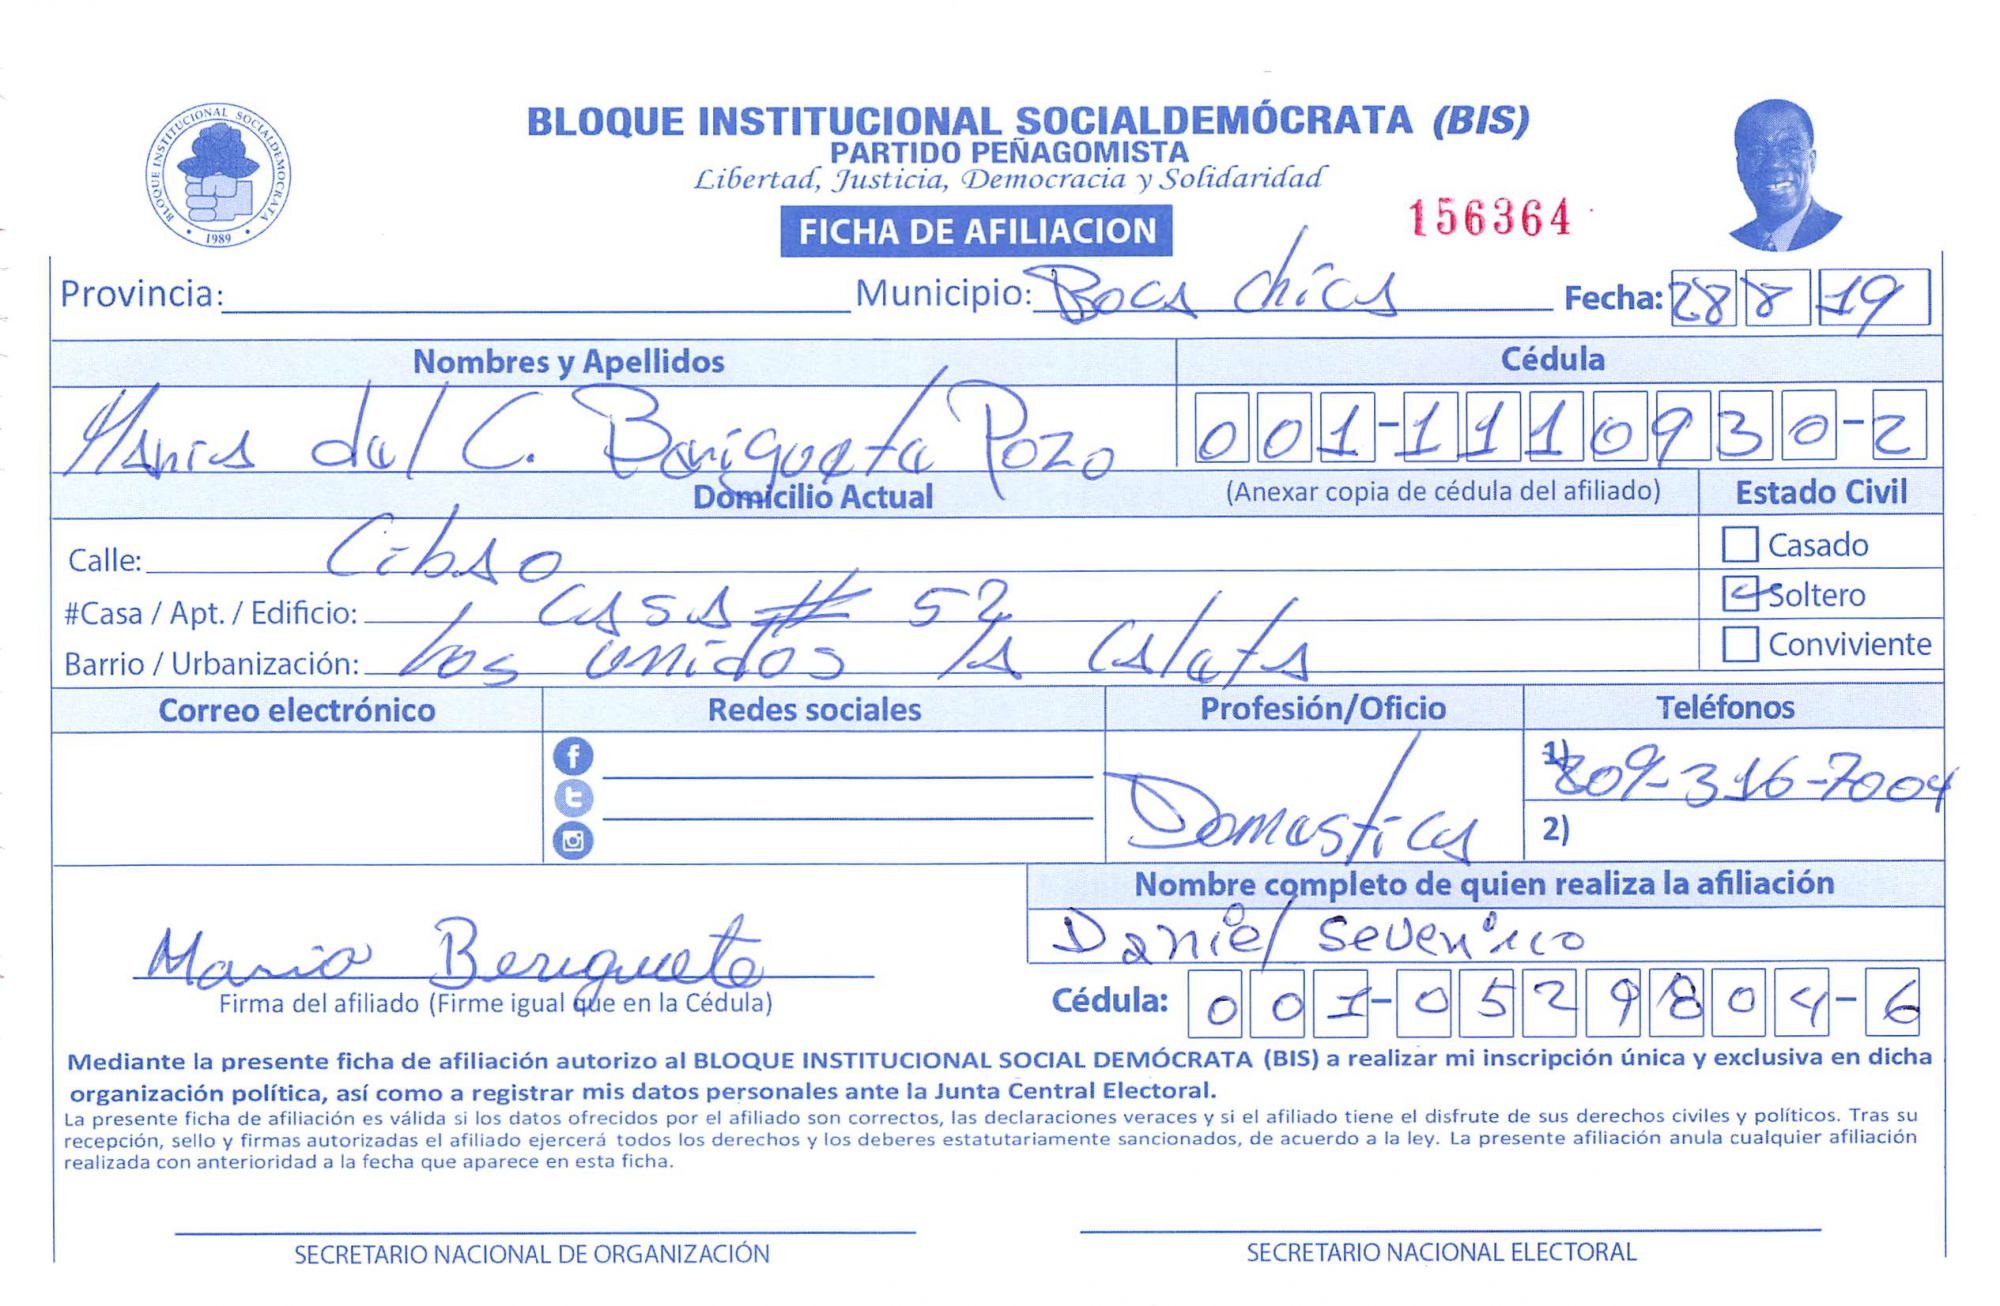 BLOQUE INSTITUCIONAL SOCIALDEMÓCRATA (BIS)
PARTIDO PEÑAGOMISTA
Libertad, Justicia, Democracia y Solidaridad
BLOQUE INSTITUCIONAL SOCIALDEMOCRATA
1989
FICHA DE AFILIACION
156364
Provincia: Municipio: Boca chica Fecha: 28 8 19
Nombres y Apellidos Cédula
Maria del C. Beriguete Pozo 001-1110930-2
Domicilio Actual (Anexar copia de cédula del afiliado) Estado Civil
Calle: Cibao Casado
#Casa / Apt. / Edificio: casa # 52 Soltero
Barrio / Urbanización: Los unidos la Caleta Conviviente
Correo electrónico Redes sociales Profesión/Oficio Teléfonos
1) 809-316-7004
Domestica
2)
Nombre completo de quien realiza la afiliación
Daniel Severino
Maria Beriguete
Firma del afiliado (Firme igual que en la Cédula) Cédula: 001-0529804-6
Mediante la presente ficha de afiliación autorizo al BLOQUE INSTITUCIONAL SOCIAL DEMÓCRATA (BIS) a realizar mi inscripción única y exclusiva en dicha
organización política, así como a registrar mis datos personales ante la Junta Central Electoral.
La presente ficha de afiliación es válida si los datos ofrecidos por el afiliado son correctos, las declaraciones veraces y si el afiliado tiene el disfrute de sus derechos civiles y políticos. Tras su
recepción, sello y firmas autorizadas el afiliado ejercerá todos los derechos y los deberes estatutariamente sancionados, de acuerdo a la ley. La presente afiliación anula cualquier afiliación
realizada con anterioridad a la fecha que aparece en esta ficha.
SECRETARIO NACIONAL DE ORGANIZACIÓN SECRETARIO NACIONAL ELECTORAL